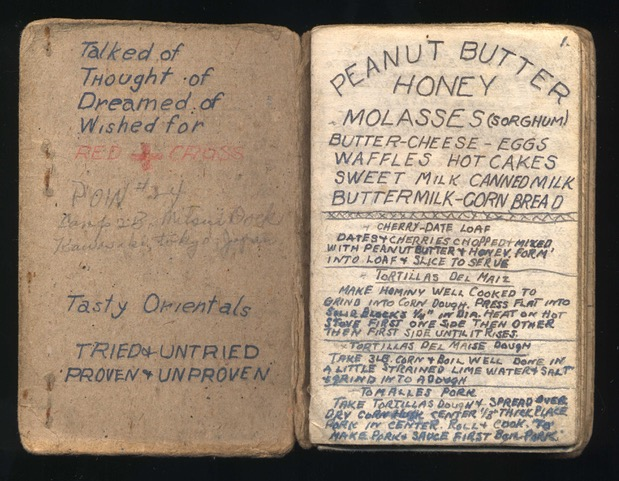 Talked of
Thought of
Dreamed of
Wished for
RED CROSS
POW # 24
Camp 2B. Mitsui Dock
Kawasaki, Tokyo, Japan
Tasty Orientals
TRIED & UNTRIED
PROVEN & UNPROVEN
1.
PEANUT BUTTER
HONEY
MOLASSES (SORGHUM)
BUTTER-CHEESE - EGGS
WAFFLES HOT CAKES
SWEET MILK CANNED MILK
BUTTERMILK-CORN BREAD
CHERRY-DATE LOAF
DATES & CHERRIES CHOPPED & MIXED
WITH PEANUT BUTTER & HONEY. FORM
INTO LOAF & SLICE TO SERVE
TORTILLAS DEL MAIZ
MAKE HOMINY WELL COOKED TO
GRIND INTO CORN DOUGH. PRESS FLAT INTO
SOLID BLOCKS 1/4" IN DIA. HEAT ON HOT
STOVE FIRST ONE SIDE THEN OTHER
THEN FIRST SIDE UNTIL IT RISES.
TORTILLAS DEL MAISE DOUGH
TAKE 3LB. CORN & BOIL WELL DONE IN
A LITTLE STRAINED LIME WATER & SALT
& GRIND INTO A DOUGH
TOMALLES PORK
TAKE TORTILLAS DOUGH & SPREAD OVER
DRY CORN HUSK CENTER 1/3" THICK PLACE
PORK IN CENTER. ROLL & COOK. "TO
MAKE PORK & SAUCE FIRST BOIL PORK."